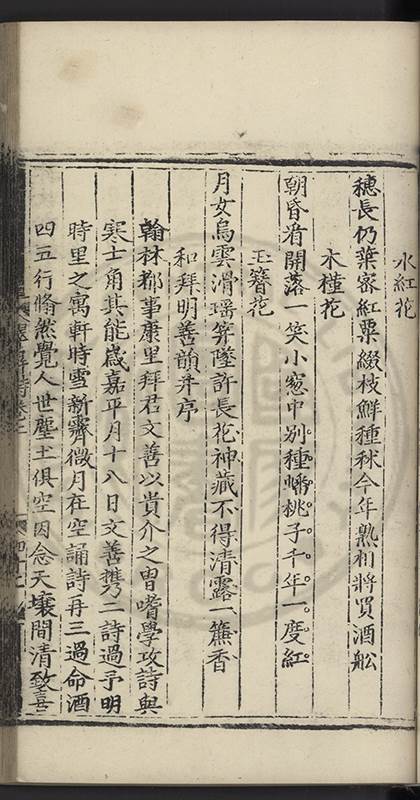 水紅花
穗長仍葉密紅粟綴枝鮮種秫今年熟相將買酒舩
木槿花
朝昏看開落一笑小窓中别種蟠桃子千年一度紅
玉簪花
月女烏雲滑瑶笄墜許長花神藏不得清露一簾香
和拜明善韻并序
翰林都事康里拜君文善以貴介之胄嗜學攻詩與
寒士角其能歲嘉平月十八日文善携二詩過予明
時里之寓軒時雪新霽微月在空誦詩再三過命酒
四五行翛然覺人世塵土俱空因念天壤間清致喜